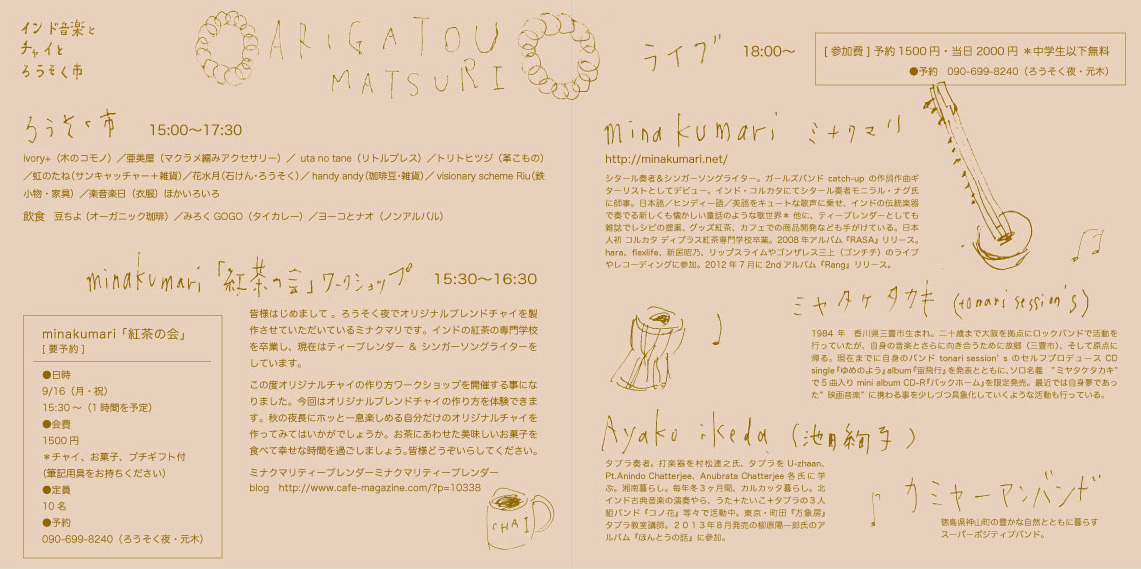 インド音楽と
チャイと
ろうそく市
ARIGATOU
MATSURI
ろうそく市 15:00〜17:30
ivory+（木のコモノ）／亜美屋（マクラメ編みアクセサリー）／ uta no tane（リトルプレス）／トリトヒツジ（革こもの）
／虹のたね（サンキャッチャー＋雑貨）／花水月（石けん・ろうそく）／ handy andy（珈琲豆・雑貨）／ visionary scheme Riu（鉄
小物・家具）／楽音楽日（衣服）ほかいろいろ
飲食 豆ちよ（オーガニック珈琲）／みろくGOGO（タイカレー）／ヨーコとナオ（ノンアルバル）
minakumari「紅茶の会」ワークショップ 15:30〜16:30
minakumari「紅茶の会」
[ 要予約 ]
●日時
9/16（月・祝）
15:30 〜（1 時間を予定）
●会費
1500 円
＊チャイ、お菓子、プチギフト付
（筆記用具をお持ちください）
●定員
10 名
●予約
090-699-8240（ろうそく夜・元木）
皆様はじめまして 。ろうそく夜でオリジナルブレンドチャイを製
作させていただいているミナクマリです。インドの紅茶の専門学校
を卒業し、現在はティーブレンダー ＆ シンガーソングライターを
しています。
この度オリジナルチャイの作り方ワークショップを開催する事にな
りました。今回はオリジナルブレンドチャイの作り方を体験できま
す。秋の夜長にホッと一息楽しめる自分だけのオリジナルチャイを
作ってみてはいかがでしょうか。お茶にあわせた美味しいお菓子を
食べて幸せな時間を過ごしましょう。皆様どうぞいらしてください。
ミナクマリティーブレンダーミナクマリティーブレンダー
blog http://www.cafe-magazine.com/?p=10338
CHAI
ライブ 18:00〜
[ 参加費 ] 予約 1500 円・当日 2000 円 ＊中学生以下無料
●予約 090-699-8240（ろうそく夜・元木）
mina kumari ミナクマリ
http://minakumari.net/
シタール奏者&シンガーソングライター。ガールズバンド catch-up の作詞作曲ギ
ターリストとしてデビュー。インド・コルカタにてシタール奏者モニラル・ナグ氏
に師事。日本語／ヒンディー語／英語をキュートな歌声に乗せ、インドの伝統楽器
で奏でる新しくも懐かしい童話のような歌世界＊ 他に、ティーブレンダーとしても
雑誌でレシピの提案、グッズ紅茶、カフェでの商品開発なども手がけている。日本
人初 コルカタ ディプラス紅茶専門学校卒業。2008 年アルバム『RASA』リリース。
hara、flexlife、新居昭乃、リップスライムやゴンザレス三上（ゴンチチ）のライブ
やレコーディングに参加。2012 年 7 月に 2nd アルバム『Rang』リリース。
ミヤタケタカキ (tonari session's)
1984 年 香川県三豊市生まれ。二十歳まで大阪を拠点にロックバンドで活動を
行っていたが、自身の音楽とさらに向き合うために故郷（三豊市）、そして原点に
帰る。現在までに自身のバンド tonari session’s のセルフプロデュース CD
single『ゆめのよう』album『宙飛行』を発表とともに、ソロ名義 “ミヤタケタカキ”
で 5 曲入り mini album CD-R『バックホーム』を限定発売。最近では自身夢であっ
た” 映画音楽” に携わる事を少しづつ具象化していくような活動も行っている。
Ayako ikeda（池田絢子）
タブラ奏者。打楽器を村松達之氏、タブラを U-zhaan、
Pt.Anindo Chatterjee、Anubrata Chatterjee 各氏に学
ぶ。湘南暮らし。毎年冬３ヶ月間、カルカッタ暮らし。北
インド古典音楽の演奏やら、うた＋たいこ＋タブラの３人
組バンド『コノ花』等々で活動中。東京・町田『万象房』
タブラ教室講師。２０１３年８月発売の柳原陽一郎氏のア
ルバム『ほんとうの話』に参加。
カミヤーマンバンド
徳島県神山町の豊かな自然とともに暮らす
スーパーポジティブバンド。